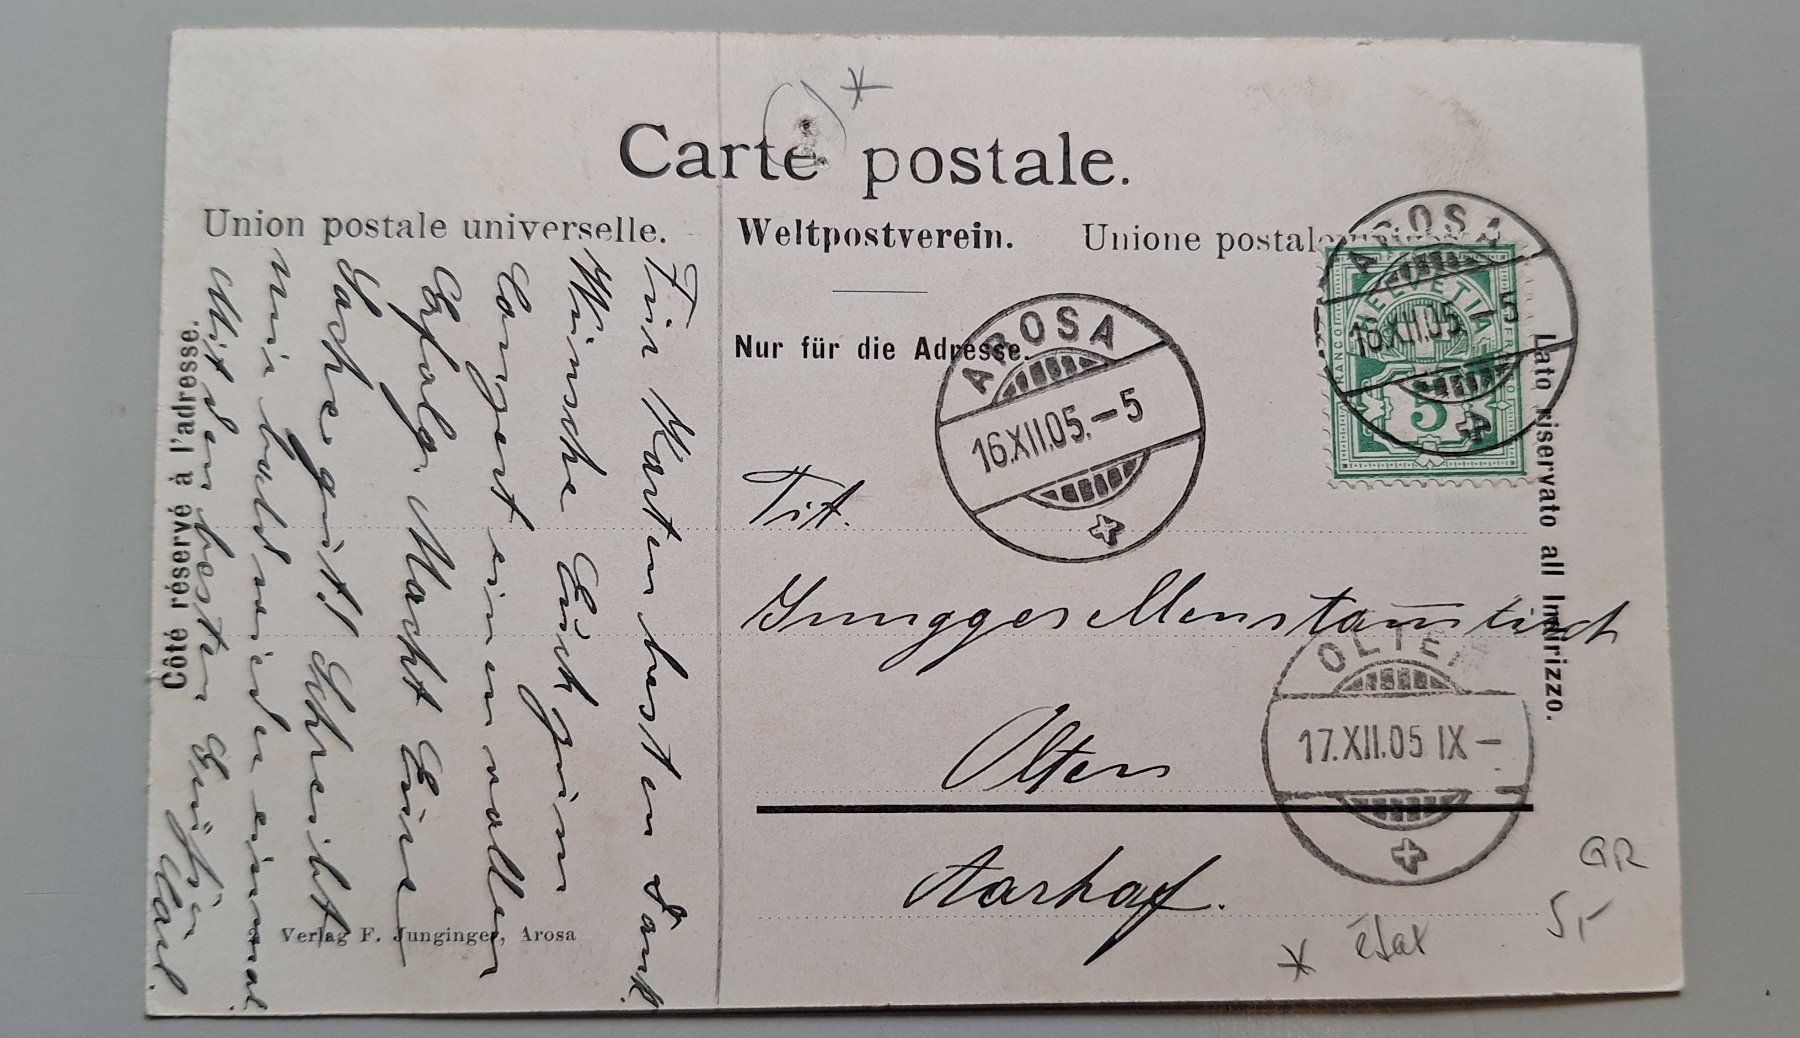 Carte postale.
Union postale universelle.
Weltpostverein.
Unione postale
Nur für die Adresse.
Côté réservé à l'adresse.
Lato riservato all Indirizzo.
AROSA
16.XII.05.-5
AROSA
16.XII.05.-5
HELVETIA
FRANCO
FRANCO
5
Tit.
Junggesellenstammtisch
Olten
Aarhof.
OLTEN
17.XII.05 IX-
Für Karten besten Dank.
Wünsche Euch zum
Conzert einen vollen
Erfolg. Macht Eure
Sache gut! Schreibt
mir bald wieder einmal
Mit den besten Grüssen
Verlag F. Junginger, Arosa
GR
5,-
état